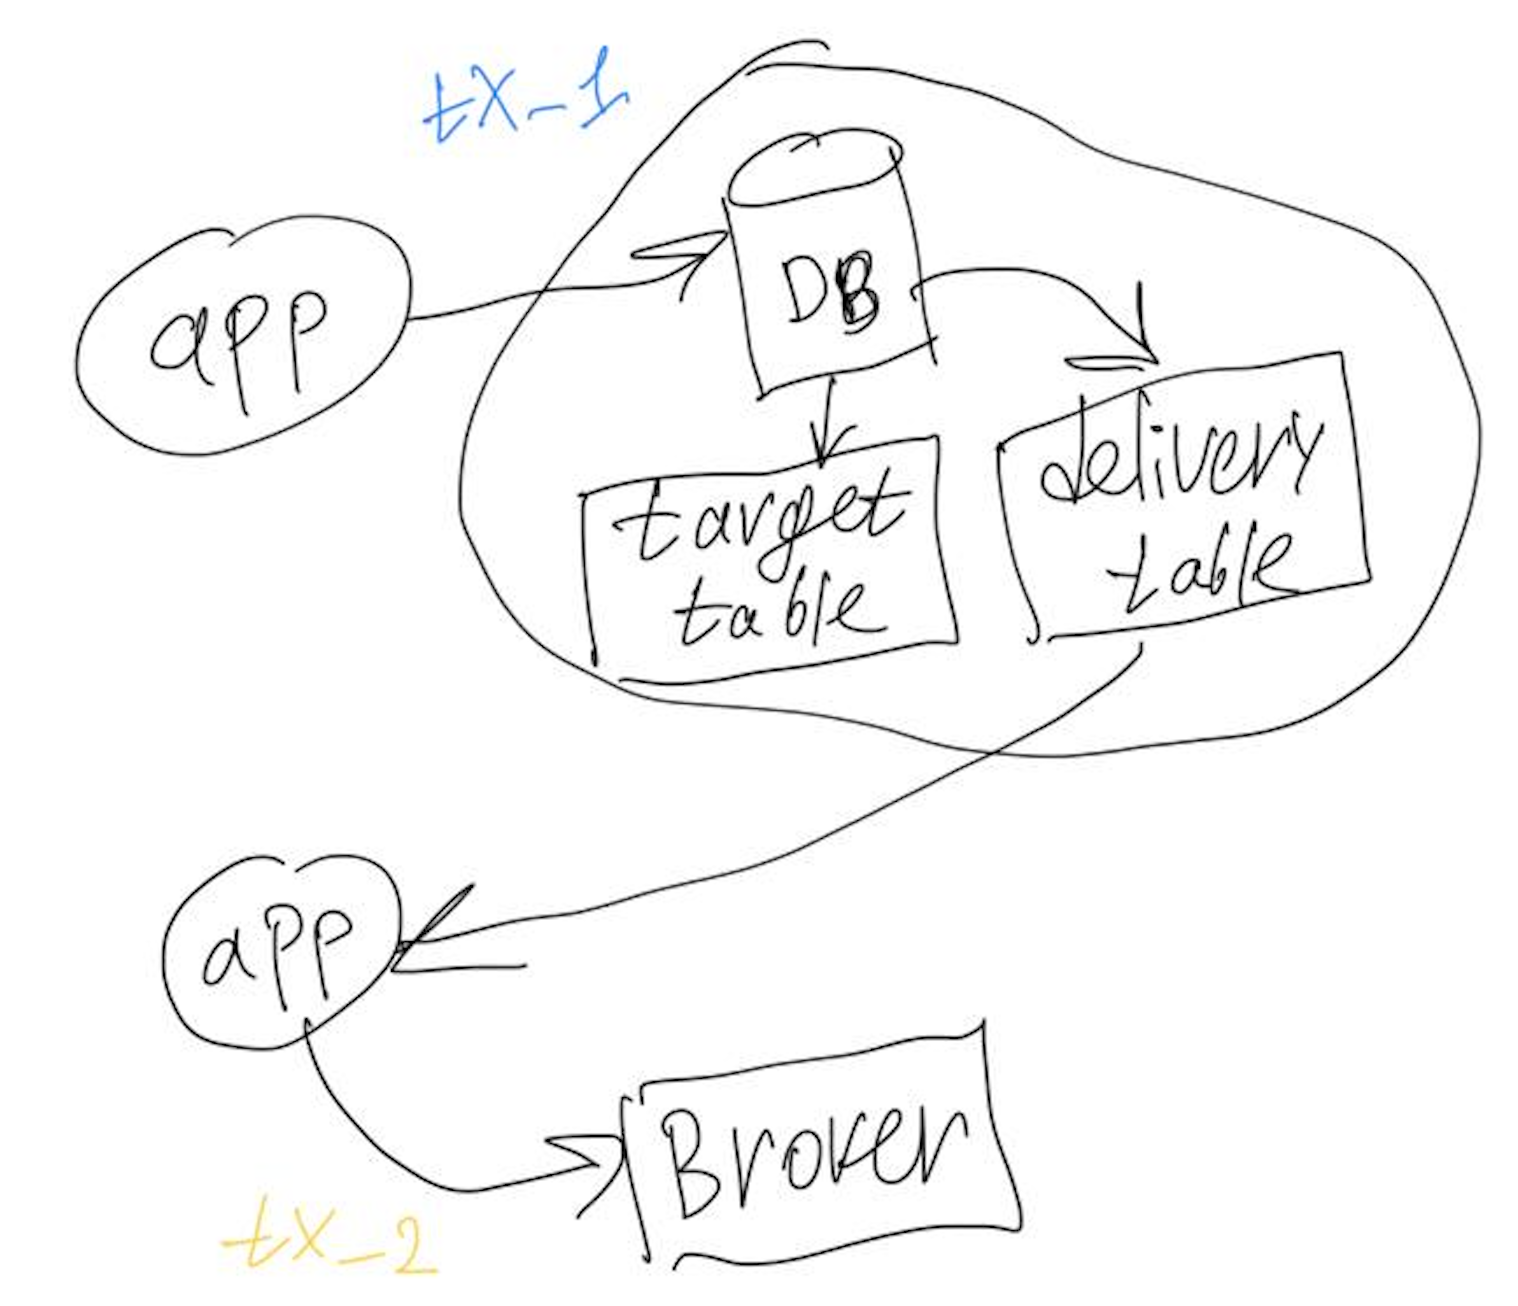 tx_1
app
DB
target
table
delivery
table
app
Broker
tx_2